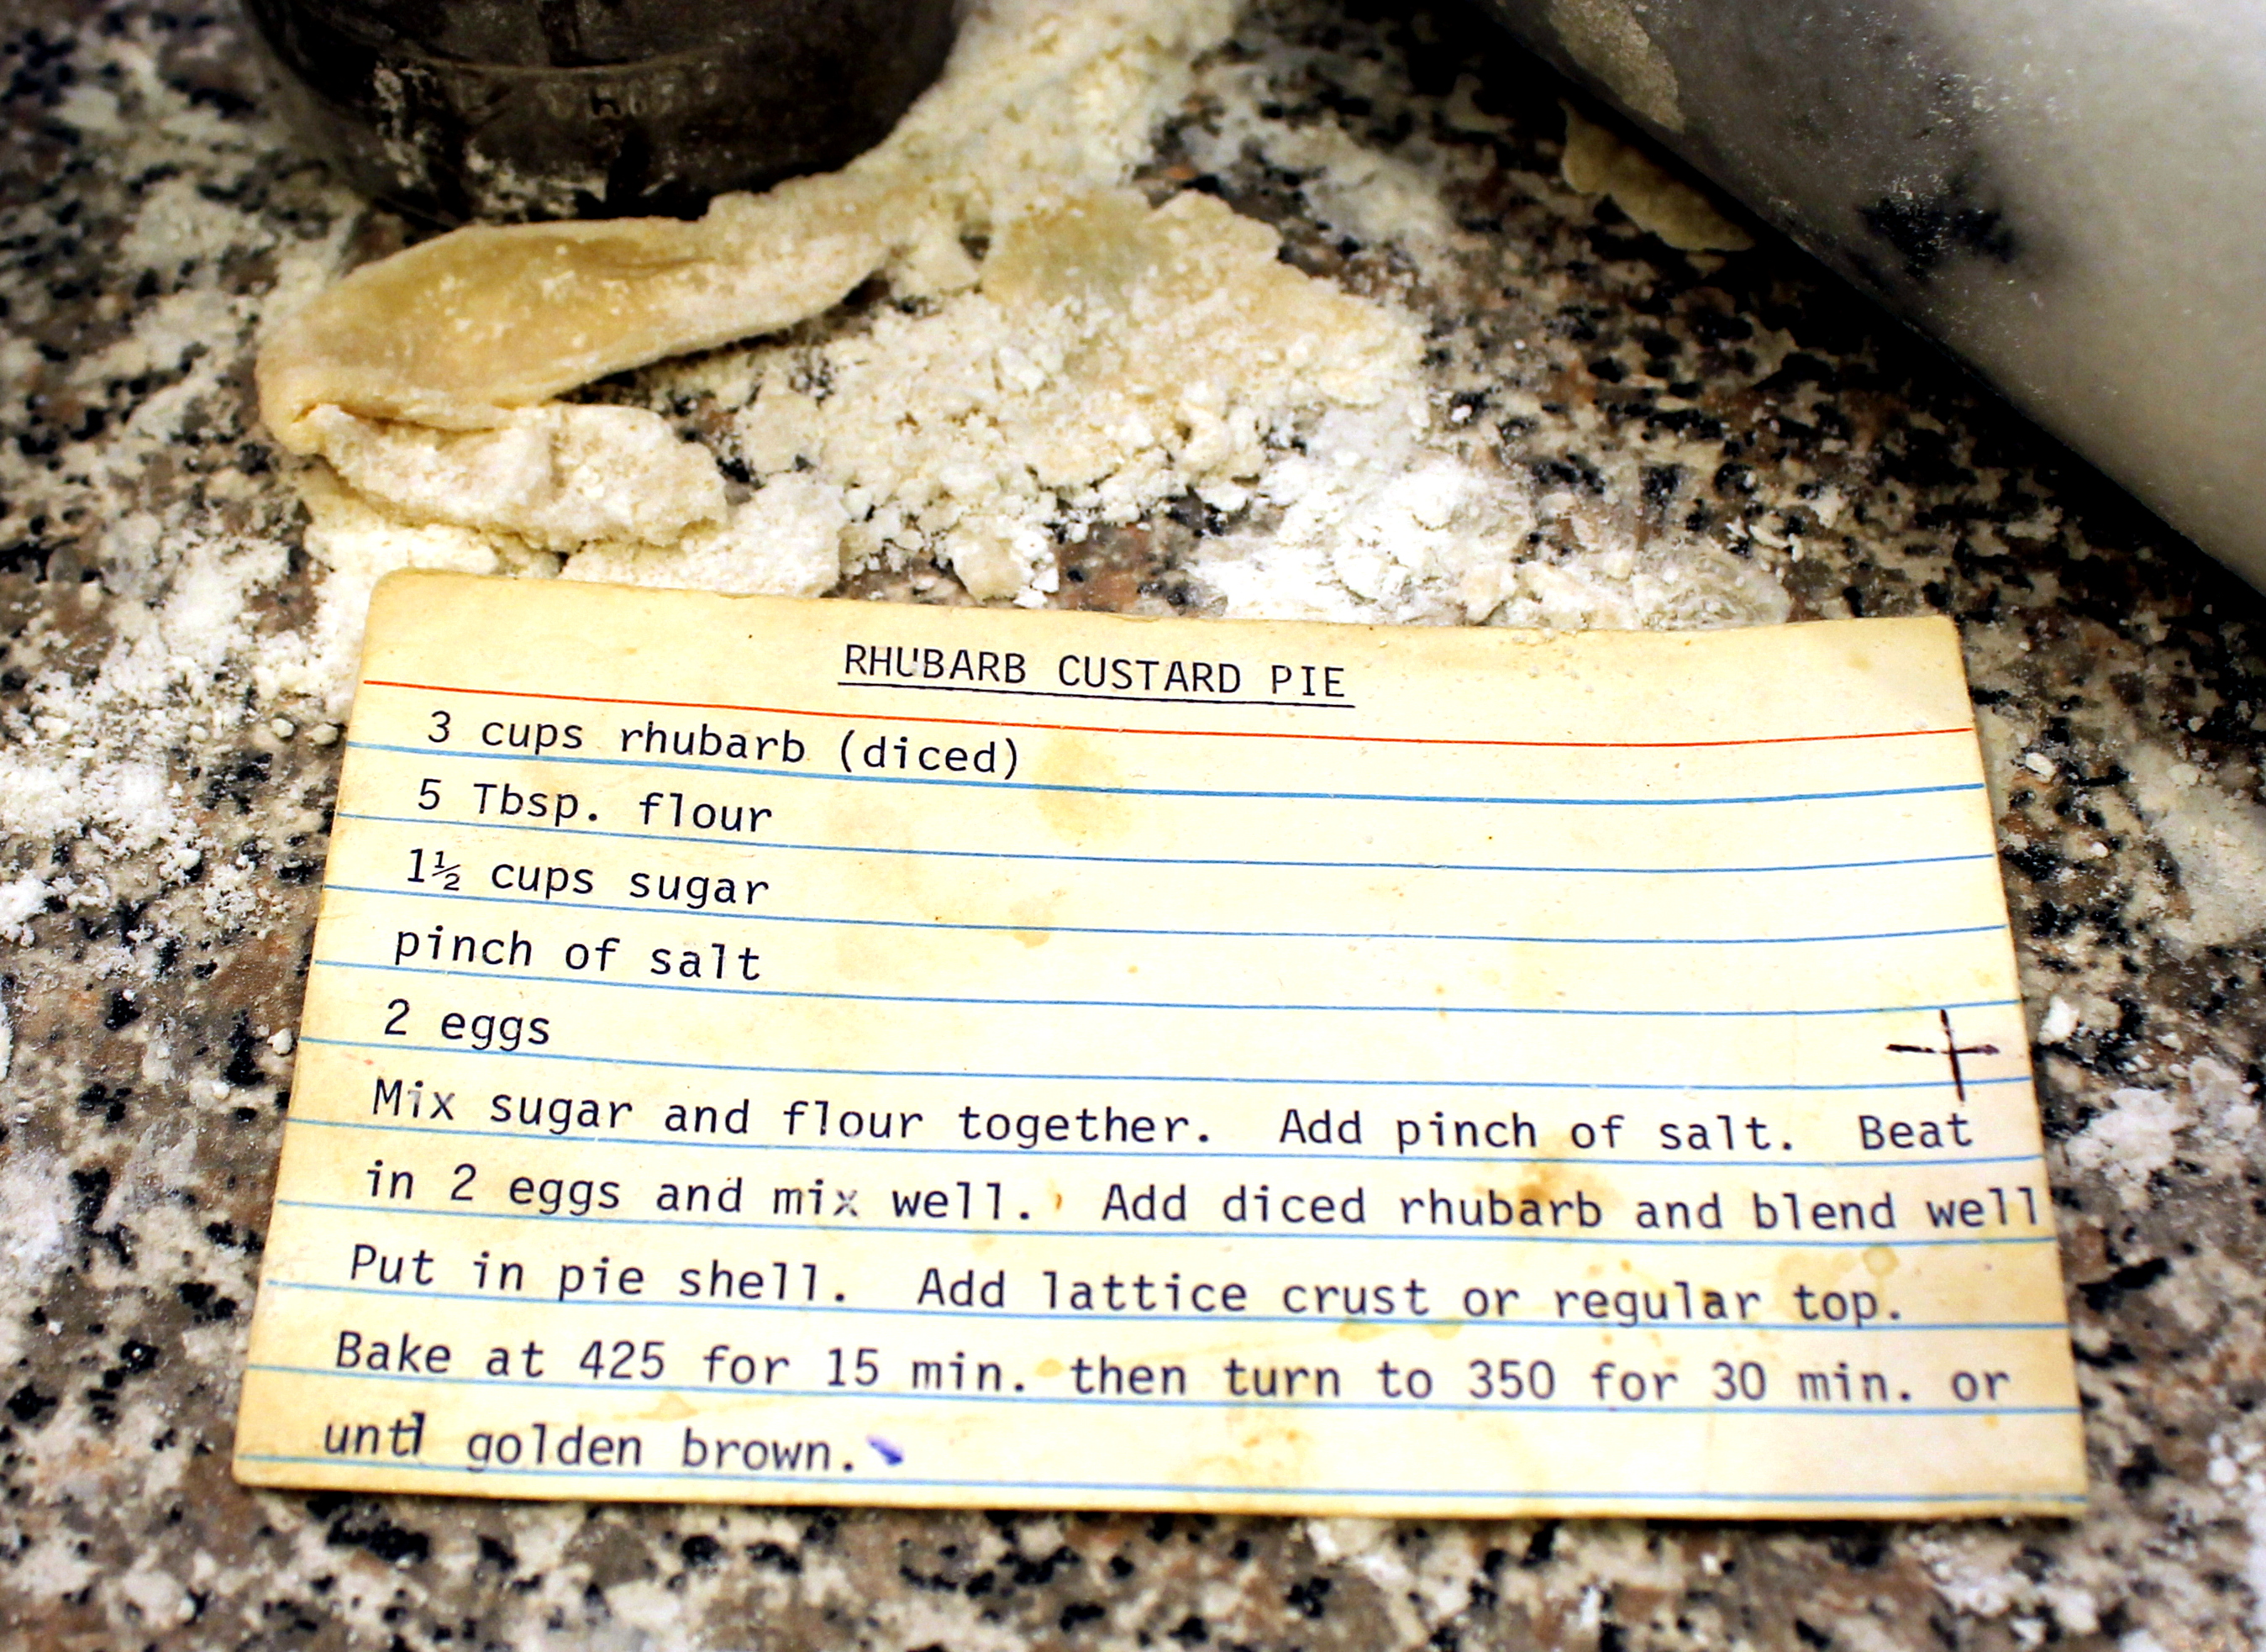 RHUBARB CUSTARD PIE
3 cups rhubarb (diced)
5 Tbsp. flour
1½ cups sugar
pinch of salt
2 eggs
Mix sugar and flour together.  Add pinch of salt.  Beat
in 2 eggs and mix well.  Add diced rhubarb and blend well
Put in pie shell.  Add lattice crust or regular top.
Bake at 425 for 15 min. then turn to 350 for 30 min. or
untl golden brown.